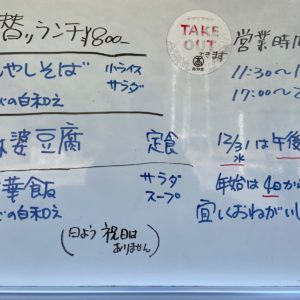 替りランチ ¥800-
やしそば 小ライス
サラダ
の白和え
婆豆腐 定食
華飯 サラダ
スープ
の白和え
(日よう祝日は
ありません)
TAKE
OUT
できます
営業時間
11:30~1
17:00~2
12/31は午後
水
年始は4日から
宜しくおねがいし